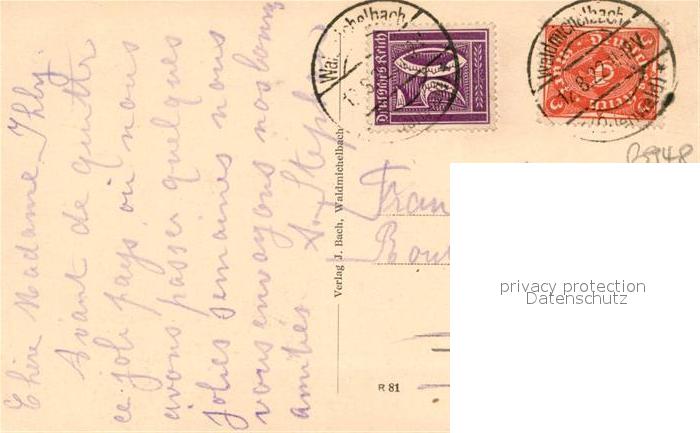 Chère Madame Ihly.
Avant de quitter
ce joli pays, où nous
avons passer quelques
jolies semaines nous
vous envoyons nos bonnes
amitiés
A. Steph
Verlag J. Bach, Waldmichelbach
R 81
Waldmichelbach
Deutsches Reich
50
Waldmichelbach
3
3
B948
privacy protection
Datenschutz